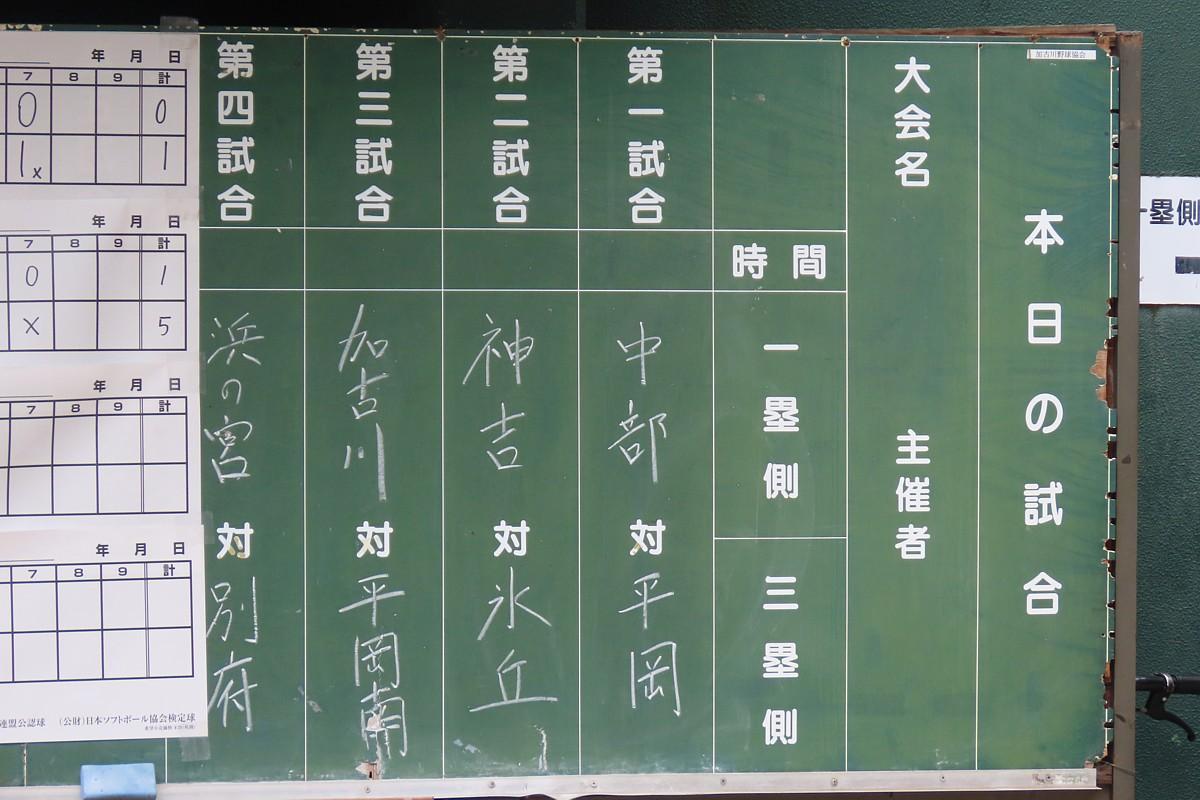 加古川野球協会
本日の試合
大会名
主催者
時間
一塁側
三塁側
第一試合
中部 対 平岡
第二試合
神吉 対 氷丘
第三試合
加古川 対 平岡南
第四試合
浜の宮 対 別府
年 月 日
7 8 9 計
0 0
1x 1
年 月 日
7 8 9 計
0 1
X 5
年 月 日
7 8 9 計
年 月 日
7 8 9 計
連盟公認球 (公財)日本ソフトボール協会検定球
一塁側